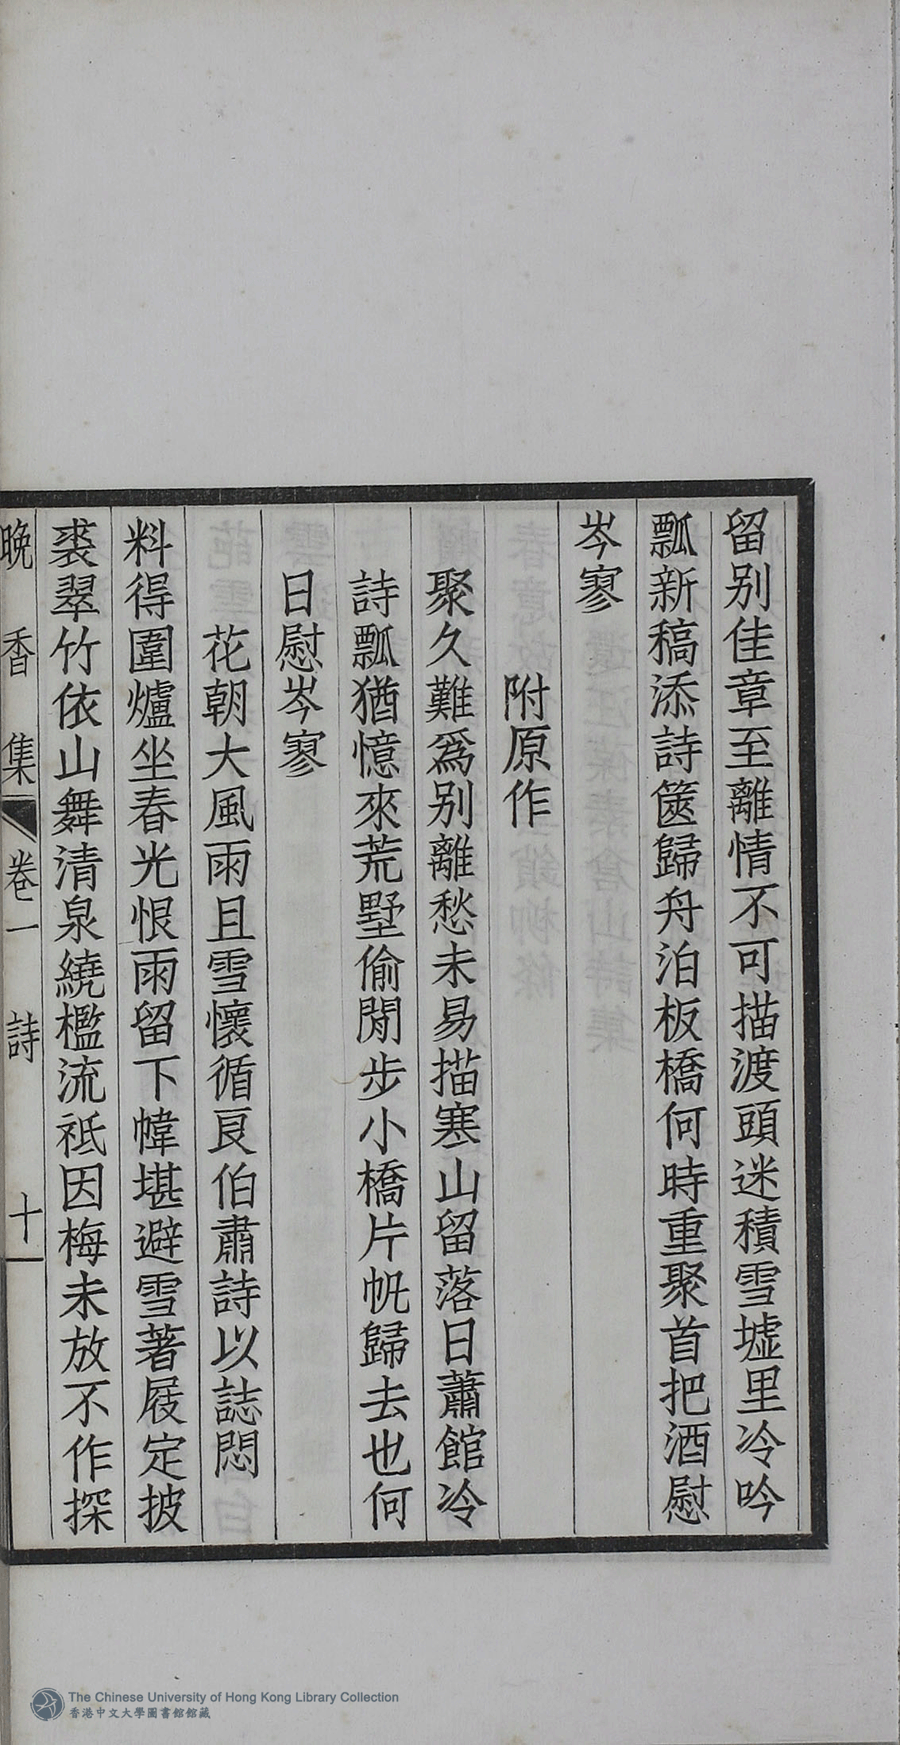 留别佳章至離情不可描渡頭迷積雪墟里冷吟
瓢新稿添詩篋歸舟泊板橋何時重聚首把酒慰
岑寥
附原作
聚久難爲别離愁未易描寒山留落日蕭館冷
詩瓢猶憶來荒墅偷閒步小橋片帆歸去也何
日慰岑寥
花朝大風雨且雪懷循良伯肅詩以誌悶
料得圍爐坐春光恨雨留下幃堪避雪著屐定披
裘翠竹依山舞清泉繞檻流祗因梅未放不作探
晚香集 卷一 詩 十
The Chinese University of Hong Kong Library Collection
香港中文大學圖書館館藏